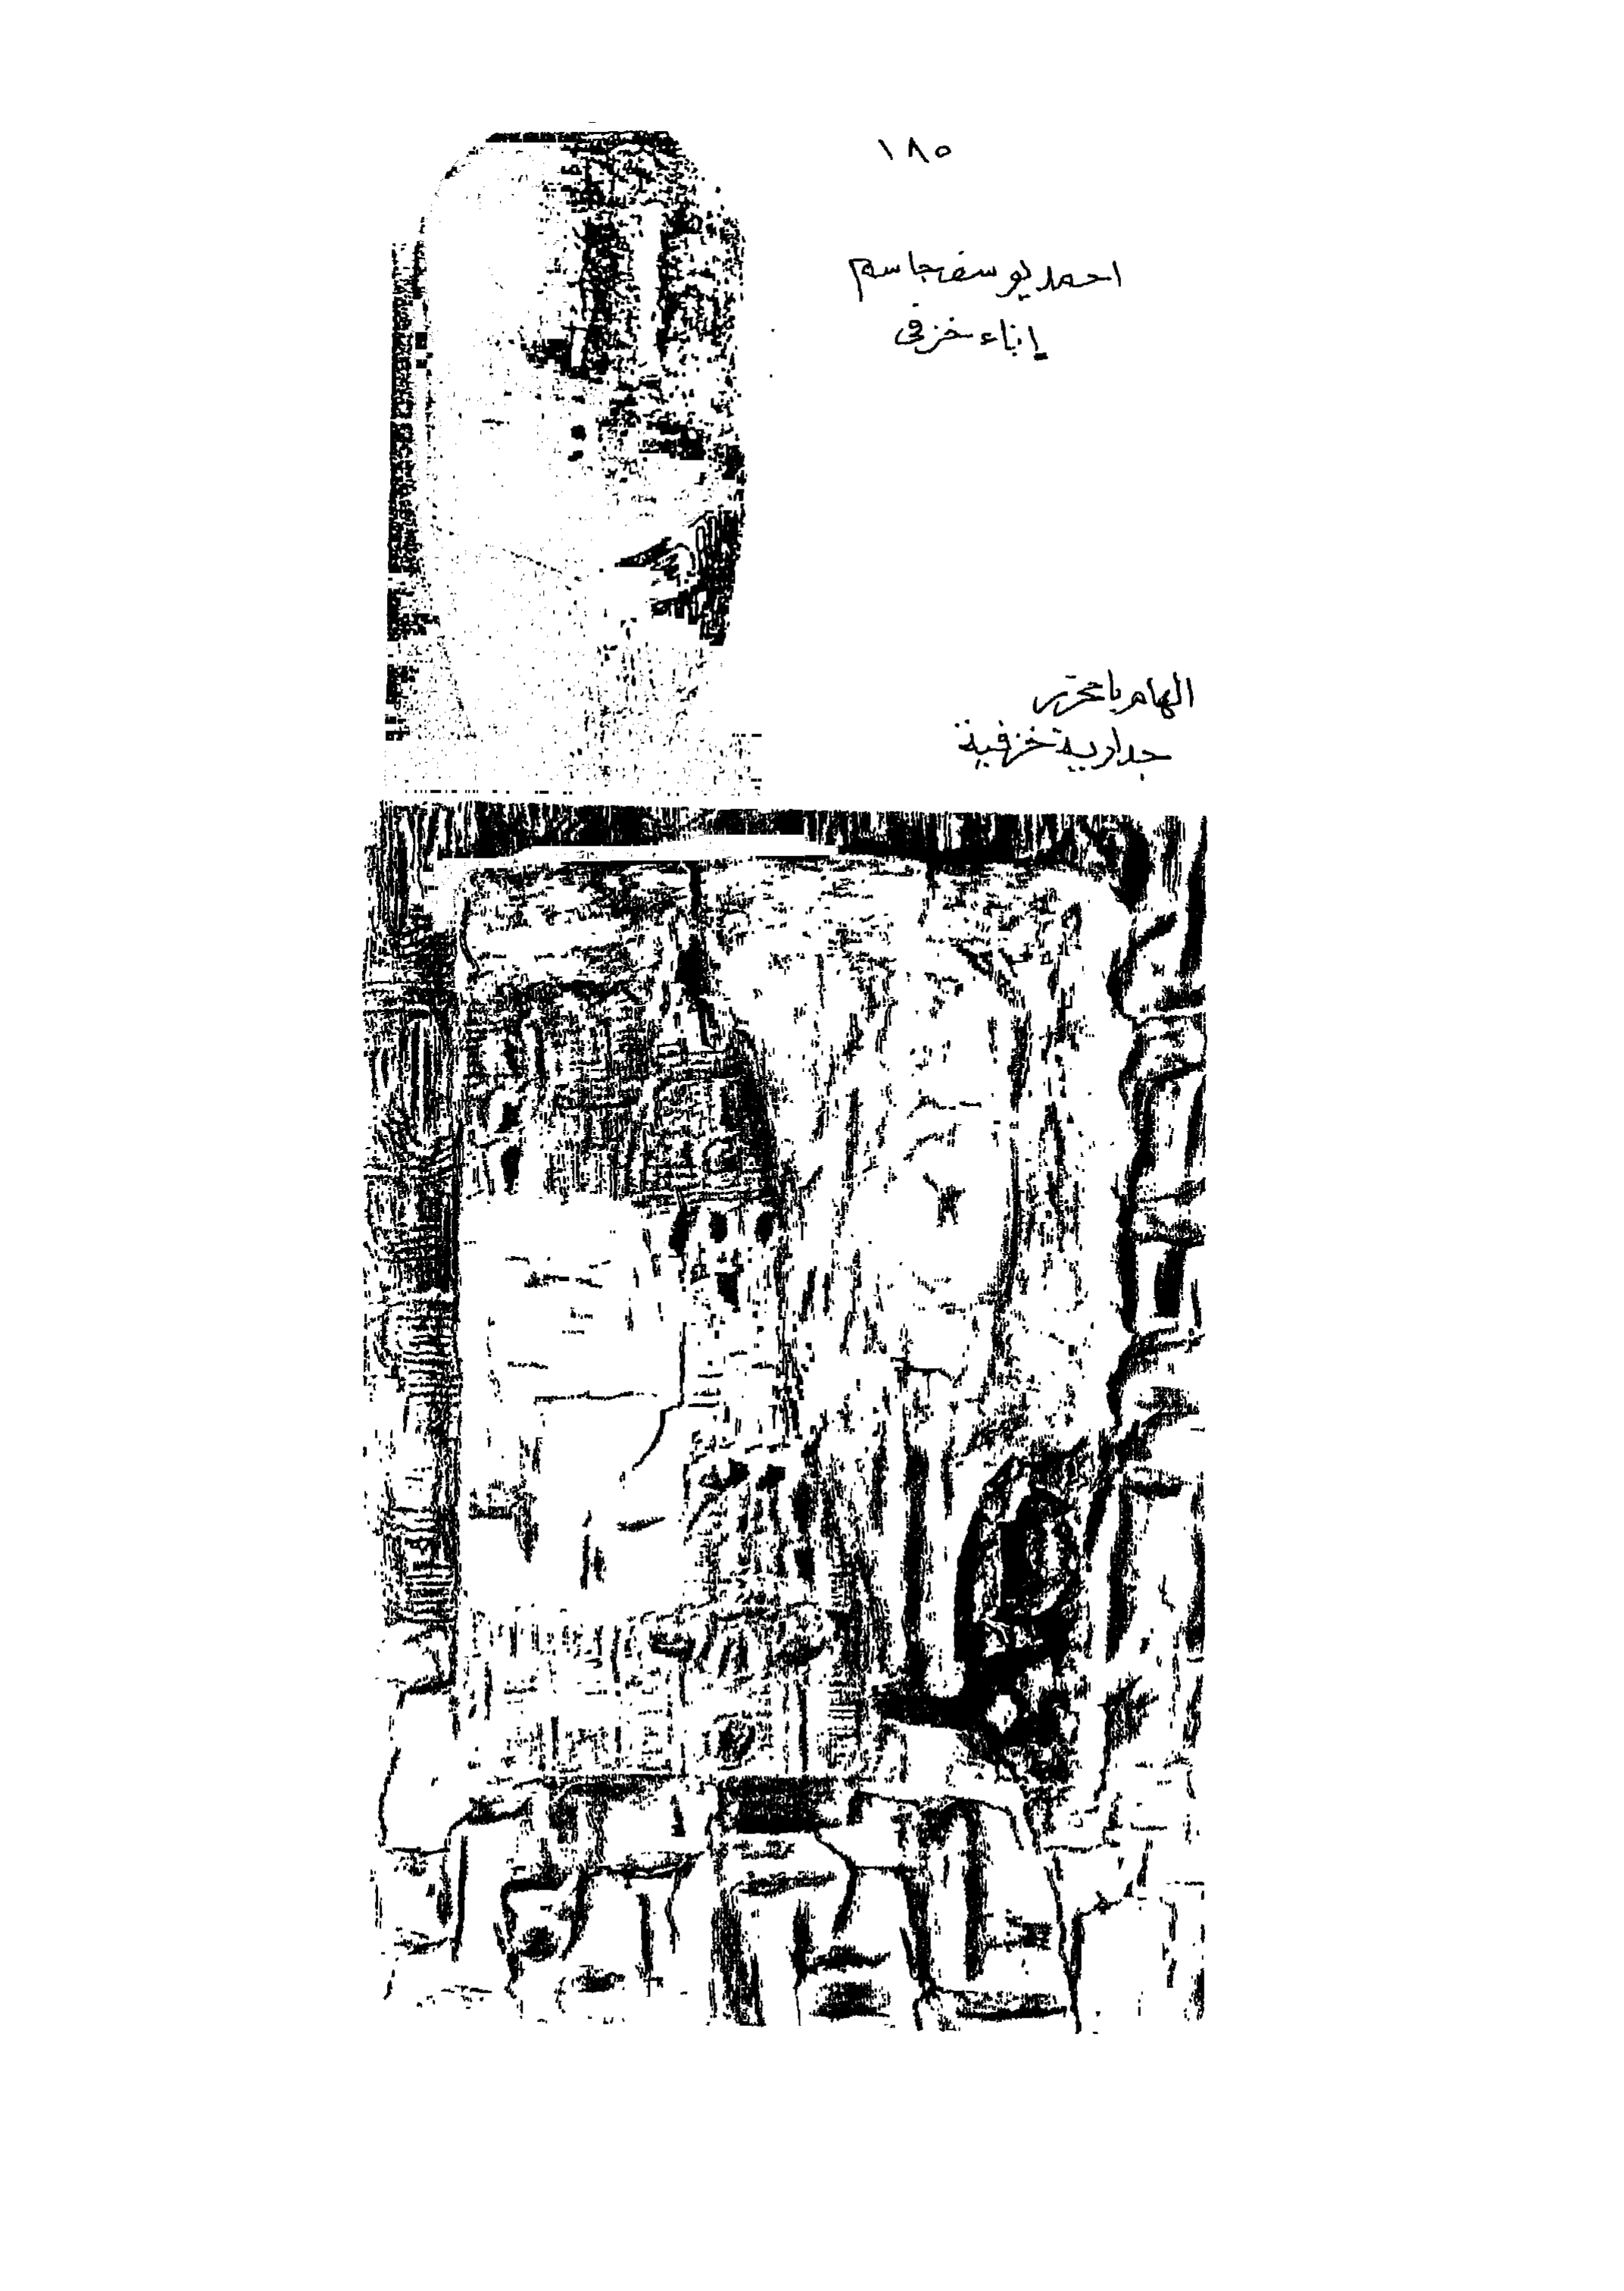 ١٨٥
احمد يوسف جاسم
إناء خزفي
الهام بامحرز
جدارية خزفية